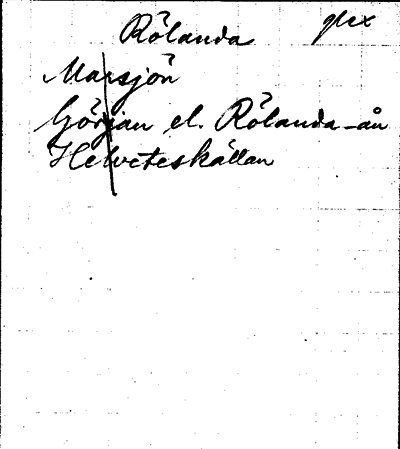 Rölanda
Marsjön
Görjan el. Rölanda-ån
Helveteskällan